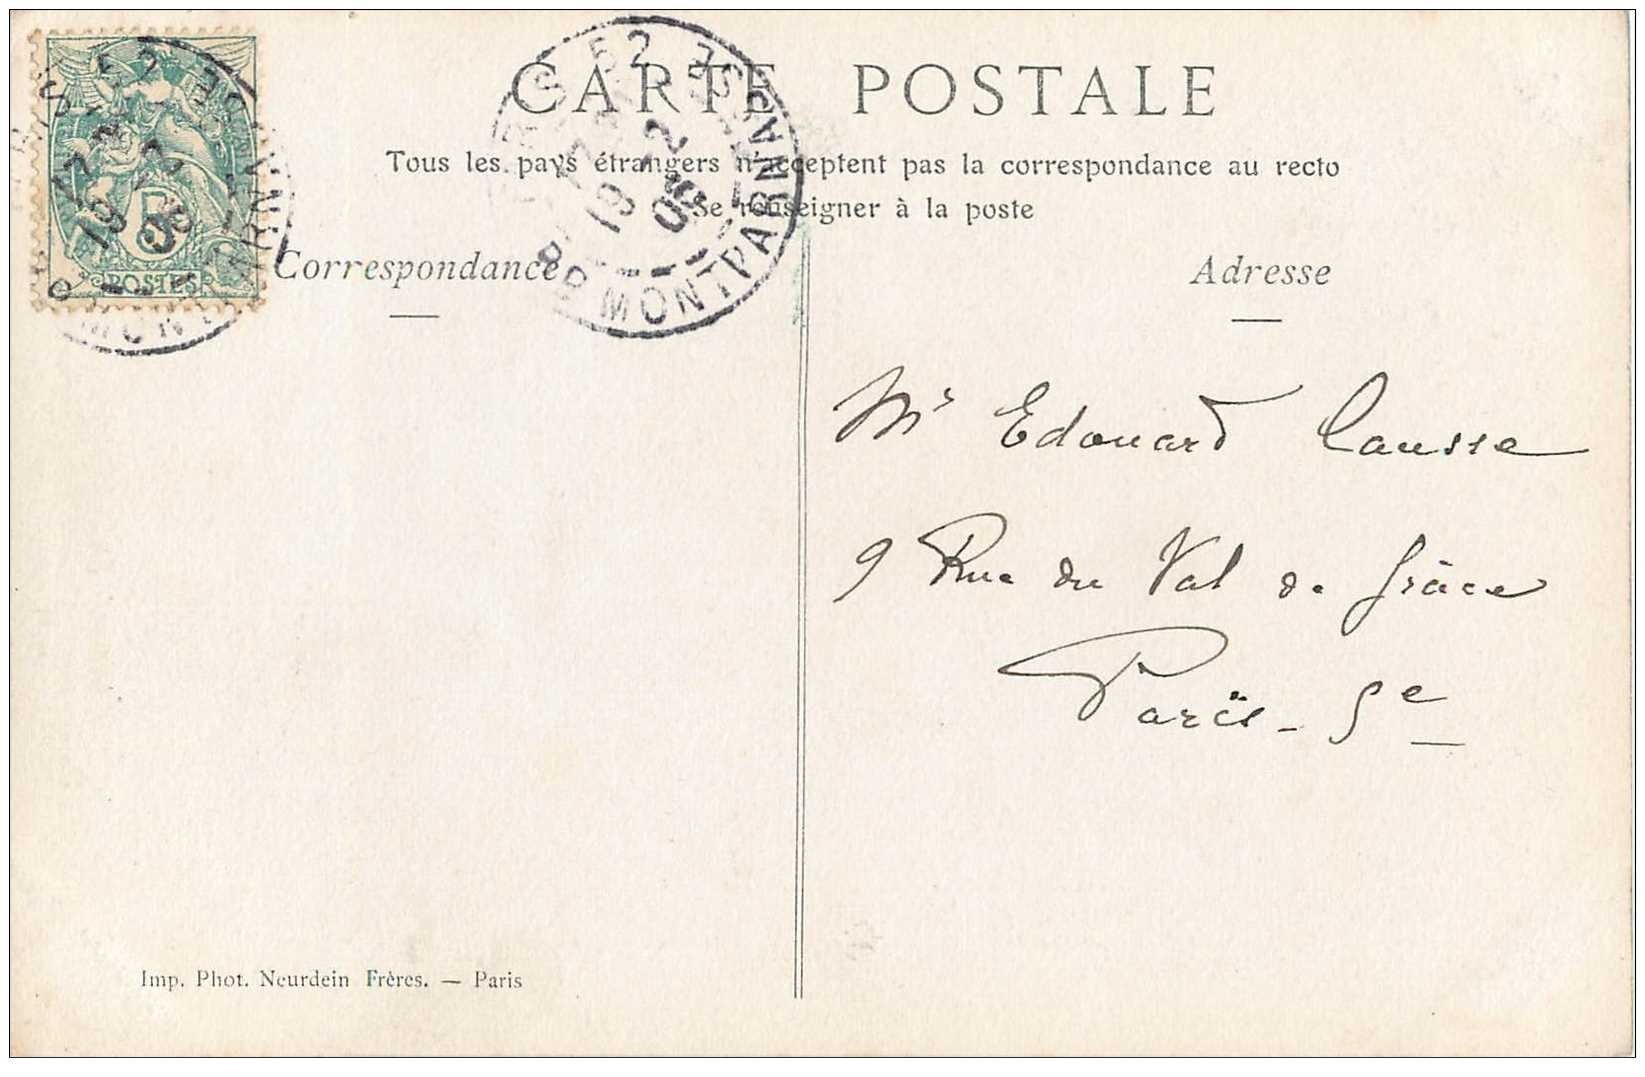 CARTE POSTALE
Tous les pays étrangers n'acceptent pas la correspondance au recto
Se renseigner à la poste
Correspondance
Adresse
5
POSTES
52
MONTPARNASSE
Mr Edouard Causse
9 Rue du Val de Grâce
Paris - 5e
Imp. Phot. Neurdein Frères. — Paris